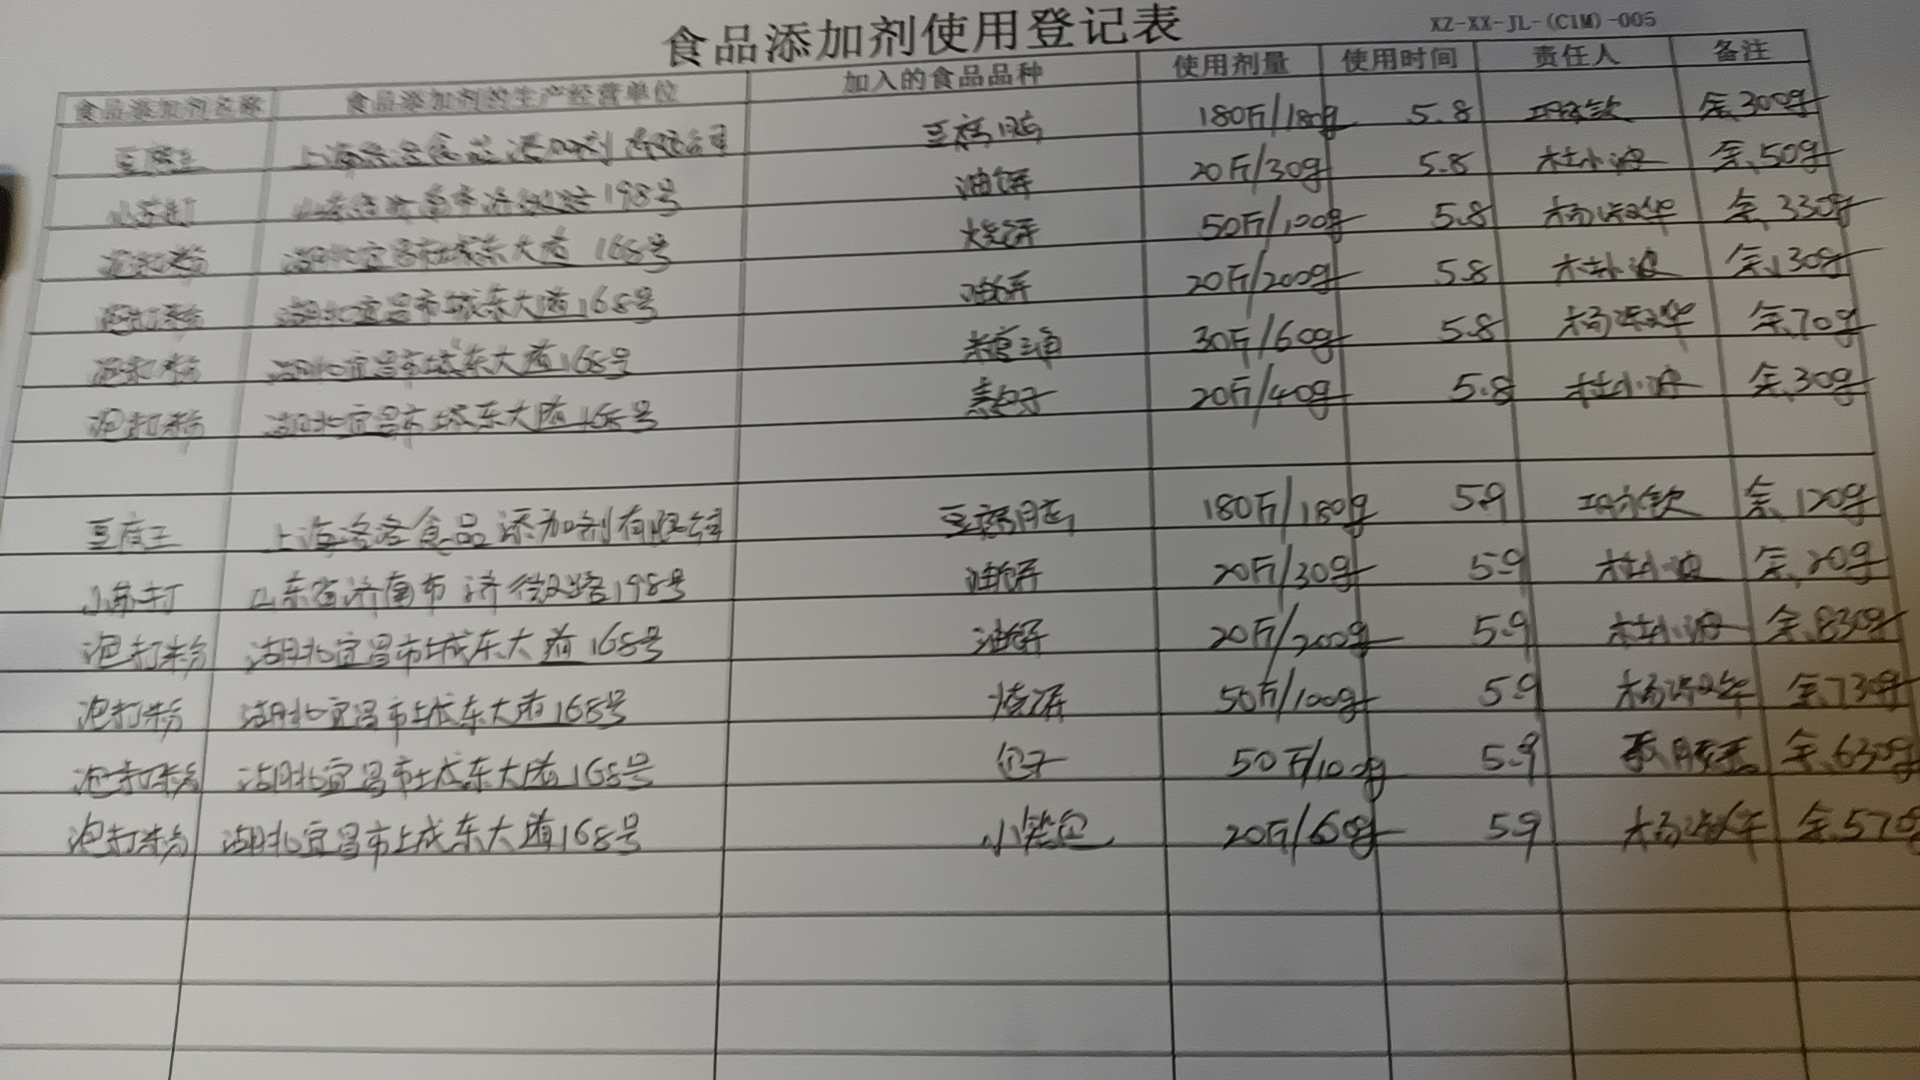 食品添加剂使用登记表
XZ-XX-JL-(CIM)-005
食品添加剂名称 食品添加剂的生产经营单位 加入的食品品种 使用剂量 使用时间 责任人 备注
豆腐王 上海 食品添加剂有限公司 豆腐脑 180斤/180g 5.8 余300g
小苏打 山东省济南市济微路198号 油饼 20斤/30g 5.8 杜小波 余50g
泡打粉 湖北宜昌市城东大道168号 烧饼 50斤/100g 5.8 余330g
泡打粉 湖北宜昌市城东大道168号 油饼 20斤/200g 5.8 杜小波 余130g
泡打粉 湖北宜昌市城东大道168号 糖三角 30斤/60g 5.8 余70g
泡打粉 湖北宜昌市城东大道168号 素包子 20斤/40g 5.8 杜小波 余30g
豆腐王 上海 食品添加剂有限公司 豆腐脑 180斤/180g 5.9 余120g
小苏打 山东省济南市济微路198号 油饼 20斤/30g 5.9 杜小波 余20g
泡打粉 湖北宜昌市城东大道168号 油饼 20斤/200g 5.9 杜小波 余830g
泡打粉 湖北宜昌市城东大道168号 烧饼 50斤/100g 5.9 余730g
泡打粉 湖北宜昌市城东大道168号 包子 50斤/100g 5.9 余630g
泡打粉 湖北宜昌市城东大道168号 小笼包 20斤/60g 5.9 余570g